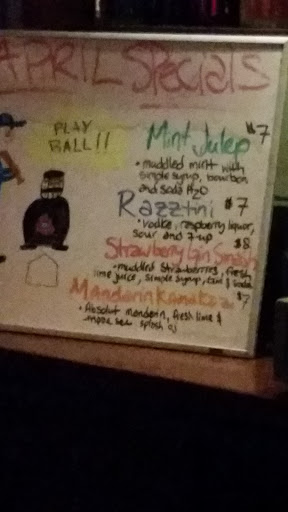 APRIL Specials
PLAY
BALL!!
Mint Julep $7
• muddled mint with
simple syrup, bourbon
and soda H2O
Razztini $7
• vodka, raspberry liquor,
sour and 7-up
Strawberry Gin Smash $8
• muddled strawberries, fresh
lime juice, simple syrup, gin & soda
Mandarin Kamakaze $7
• Absolut mandarin, fresh lime &
splash oj